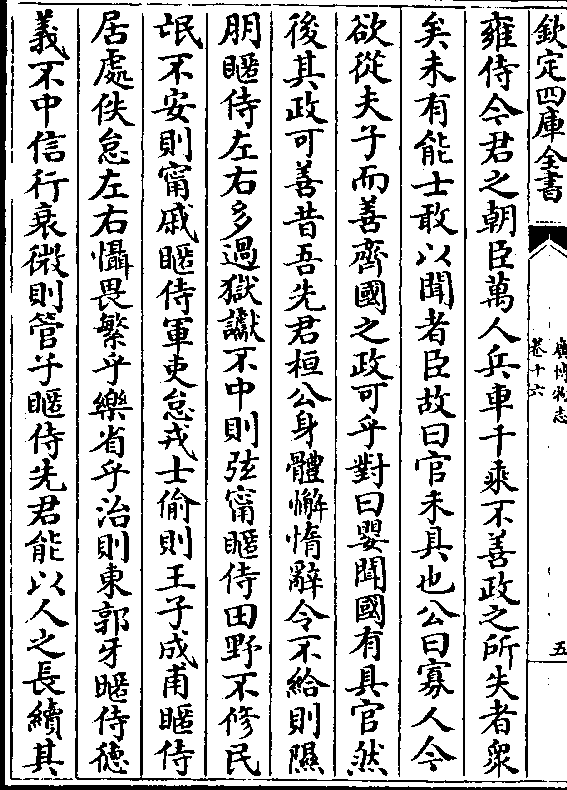 欽定四庫全書
廣博物志
卷十六
五
雍侍今君之朝臣萬人兵車千乘不善政之所失者衆
矣未有能士敢以聞者臣故曰官未具也公曰寡人今
欲從夫子而善齊國之政可乎對曰嬰聞國有具官然
後其政可善昔吾先君桓公身體懈惰辭令不給則隰
朋暱侍左右多過獄讞不中則弦甯暱侍田野不修民
氓不安則甯戚暱侍軍吏怠戎士偷則王子成甫暱侍
居處佚怠左右懾畏繁乎樂省乎治則東郭牙暱侍德
義不中信行衰微則管子暱侍先君能以人之長續其